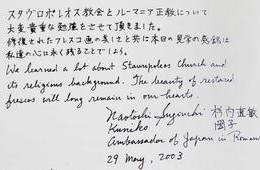 スタヴロポレオス教会とルーマニア正教について
大変貴重な勉強をさせて頂きました。
修復されたフレスコ画の美しさと共に本日の見学の
私達の心に永く残ることでしょう。
We learned a lot about Stavropoleos Church and
its religious background. The beauty of restored
frescos will long remain in our hearts.
Naotoshi Sugiuchi 杉内直敏
Kuniko 國子
Ambassador of Japan in Romania
29 May, 2003